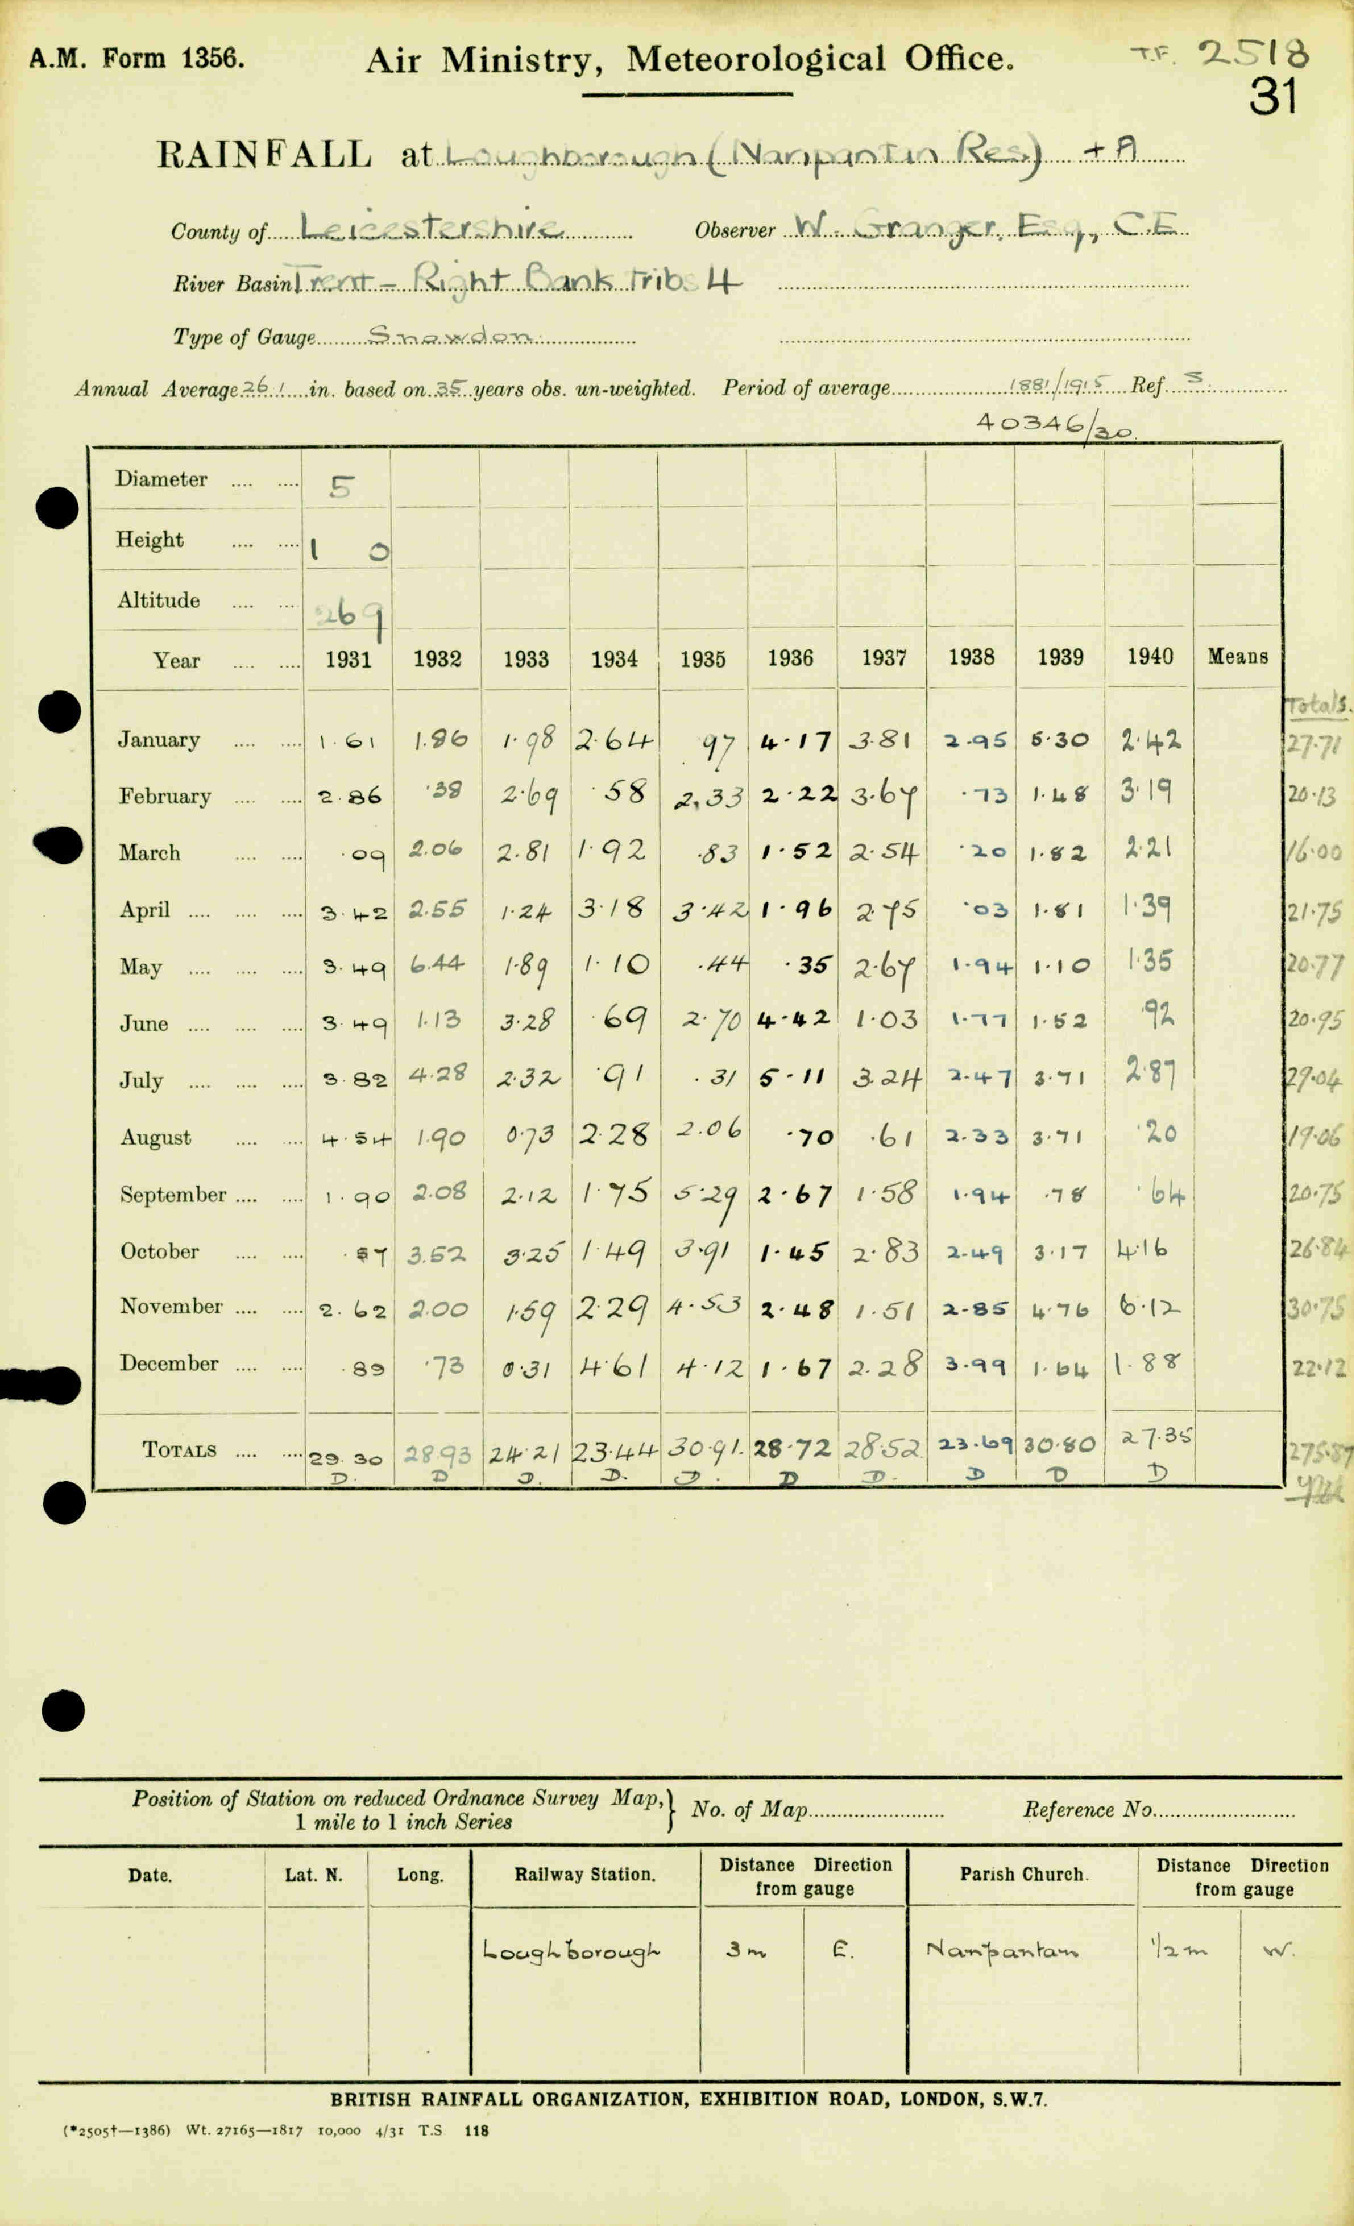 A.M. Form 1356. Air Ministry, Meteorological Office. T.F. 2518
31
RAINFALL at Loughborough (Nanpantan Res) + A
County of Leicestershire Observer W. Granger, Esq, C.E
River Basin Trent - Right Bank Tribs 4
Type of Gauge Snowdon
Annual Average 26.1 in. based on 35 years obs. un-weighted. Period of average 1881/1915 Ref S.
40346/30.
Diameter 5
Height 1 0
Altitude 269
Year 1931 1932 1933 1934 1935 1936 1937 1938 1939 1940 Means
Totals.
January 1.61 1.86 1.98 2.64 .97 4.17 3.81 2.95 5.30 2.42 27.71
February 2.86 .38 2.69 .58 2.33 2.22 3.67 .73 1.48 3.19 20.13
March .09 2.06 2.81 1.92 .83 1.52 2.54 .20 1.82 2.21 16.00
April 3.42 2.55 1.24 3.18 3.42 1.96 2.75 .03 1.81 1.39 21.75
May 3.49 6.44 1.89 1.10 .44 .35 2.67 1.94 1.10 1.35 20.77
June 3.49 1.13 3.28 .69 2.70 4.42 1.03 1.77 1.52 .92 20.95
July 3.82 4.28 2.32 .91 .31 5.11 3.24 2.47 3.71 2.87 29.04
August 4.54 1.90 0.73 2.28 2.06 .70 .61 2.33 3.71 .20 19.06
September 1.90 2.08 2.12 1.75 5.29 2.67 1.58 1.94 .78 .64 20.75
October .57 3.52 3.25 1.49 3.91 1.45 2.83 2.49 3.17 4.16 26.84
November 2.62 2.00 1.59 2.29 4.53 2.48 1.51 2.85 4.76 6.12 30.75
December .89 .73 0.31 4.61 4.12 1.67 2.28 3.99 1.64 1.88 22.12
TOTALS 29.30 28.93 24.21 23.44 30.91 28.72 28.52 23.69 30.80 27.35 275.87
D. D D. D. D. D D. D D D
Position of Station on reduced Ordnance Survey Map, 1 mile to 1 inch Series } No. of Map Reference No.
Date. Lat. N. Long. Railway Station. Distance Direction from gauge Parish Church. Distance Direction from gauge
Loughborough 3m E. Nanpantan 1/2 m W.
BRITISH RAINFALL ORGANIZATION, EXHIBITION ROAD, LONDON, S.W.7.
(*2505†—1386) Wt. 27165—1817 10,000 4/31 T.S 118